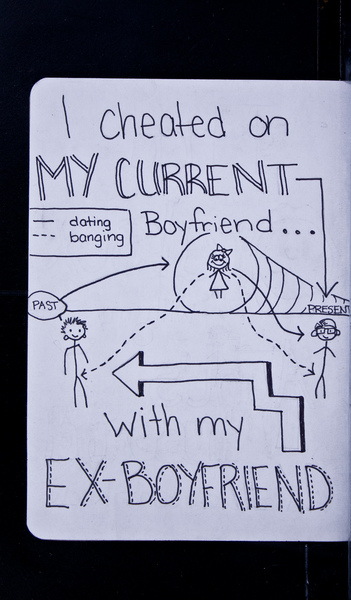 I cheated on
MY CURRENT
dating
banging
Boyfriend...
PAST
PRESENT
with my
EX-BOYFRIEND